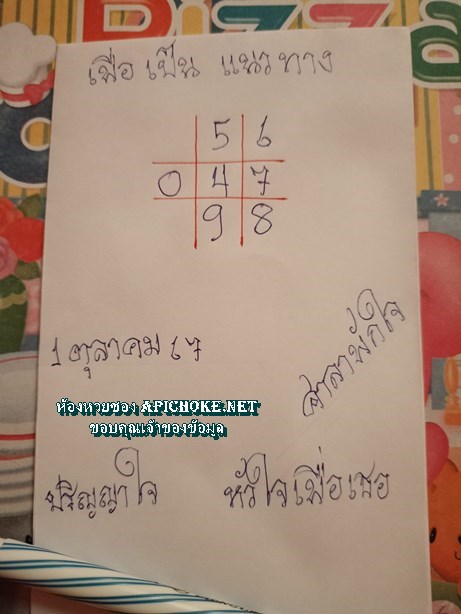 PIZZA
เพื่อ เป็น แนวทาง
5 6
0 4 7
9 8
1 ตุลาคม 67
ศาลาพักใจ
ห้องหวยซอง APICHOKE.NET
ขอบคุณเจ้าของข้อมูล
ปริญญาใจ
หัวใจเพื่อเธอ